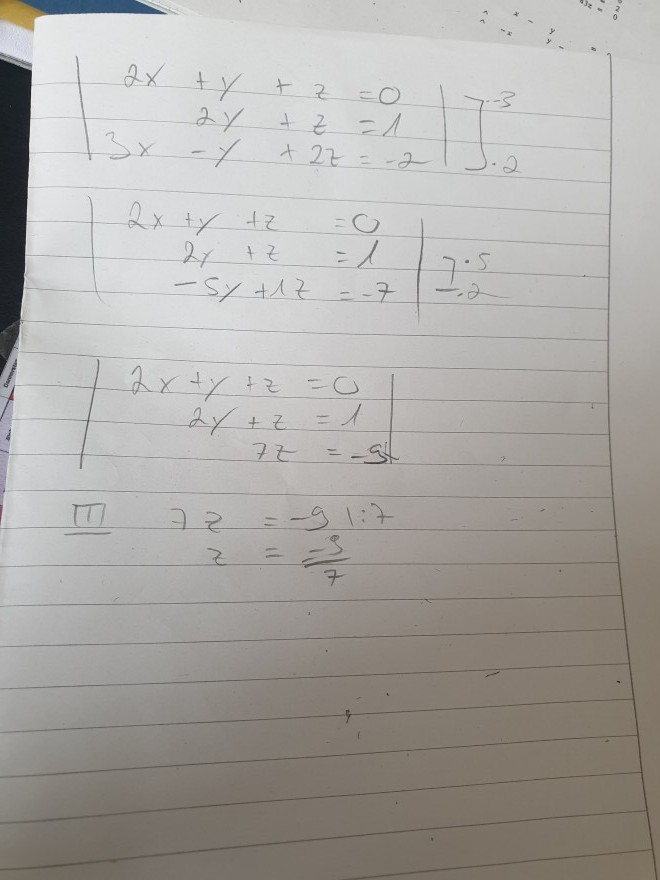 2x + y + z = 0 | ·-3
2y + z = 1
3x - y + 2z = -2 | ·2
2x + y + z = 0
2y + z = 1 | ·5
-5y + 1z = -7 | ·2
2x + y + z = 0
2y + z = 1
7z = -9
III 7z = -9 |:7
z = -9/7